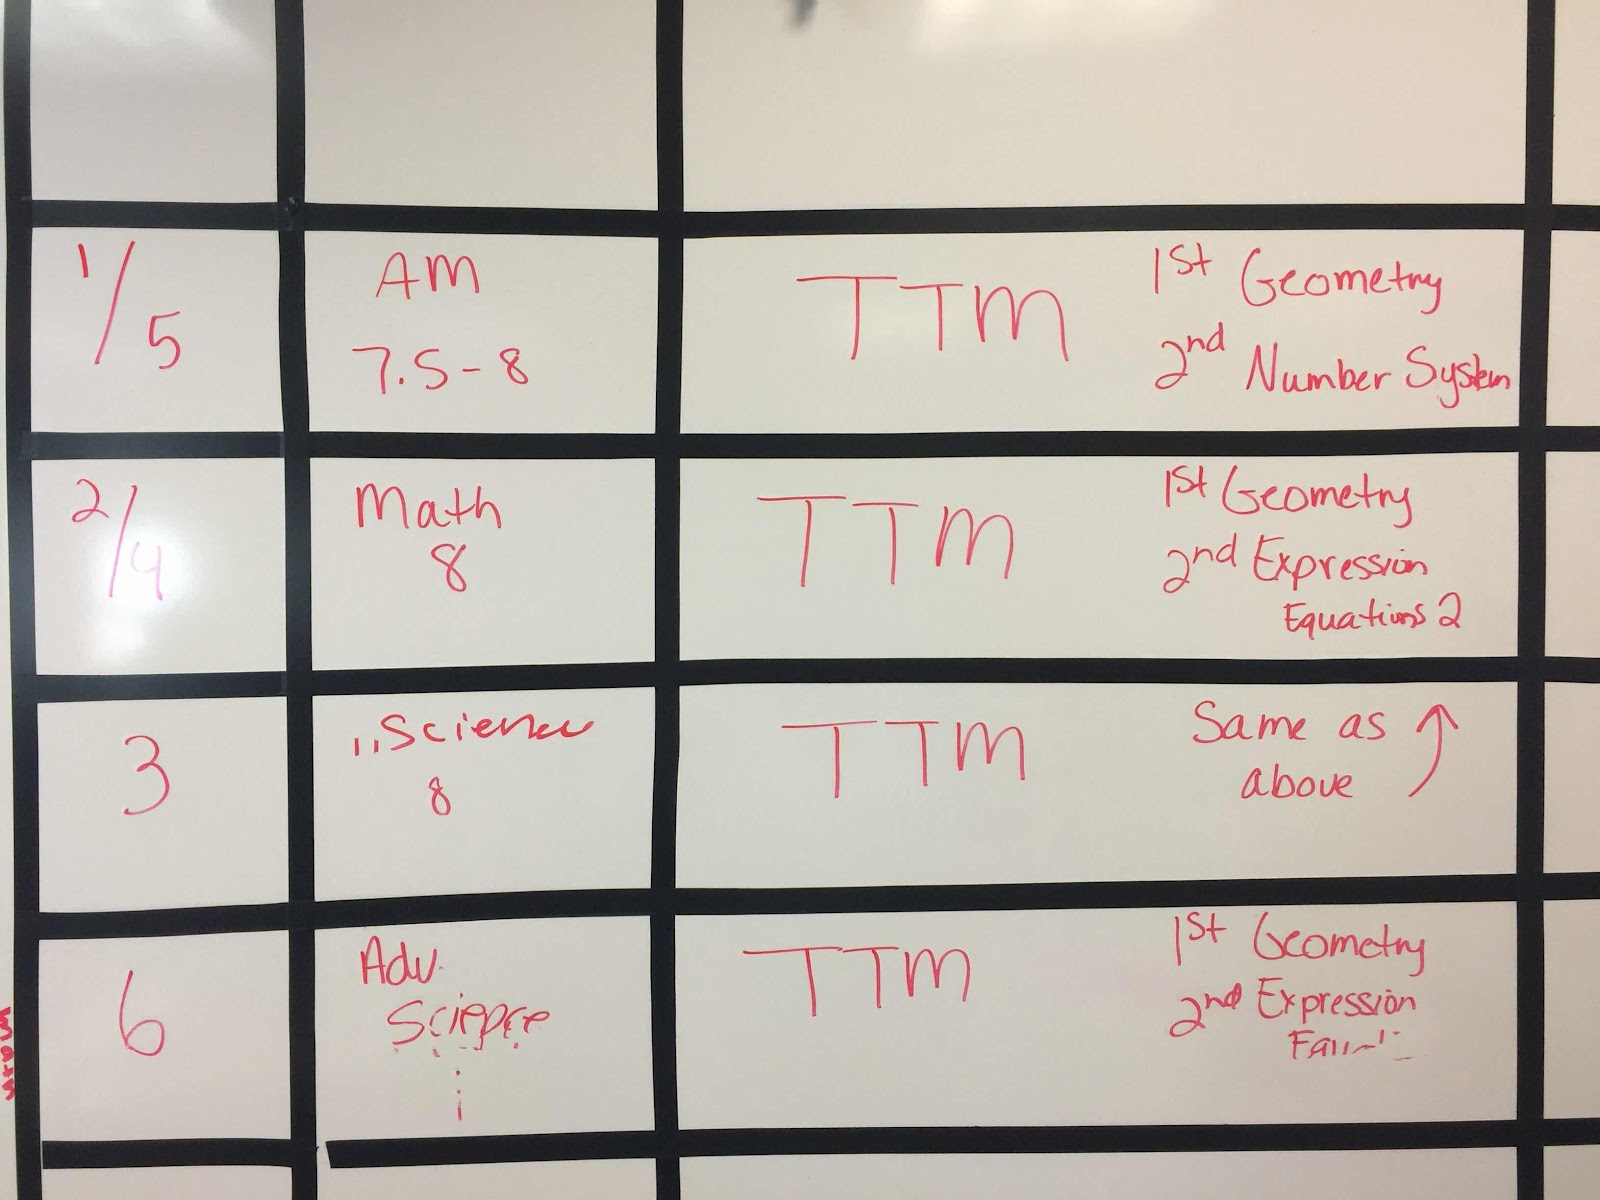 1/5
AM
7.5-8
TTM
1st Geometry
2nd Number System
2/4
Math
8
TTM
1st Geometry
2nd Expression
Equations 2
3
Science
8
TTM
Same as
above
6
Adv.
Science
TTM
1st Geometry
2nd Expression